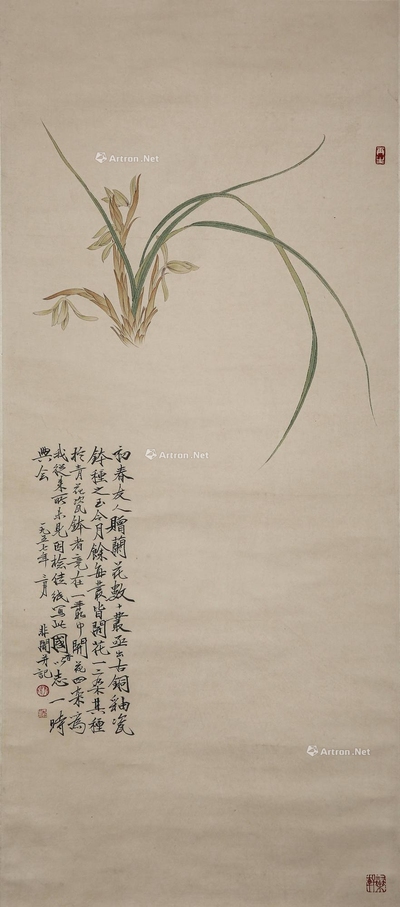 初春友人贈蘭花數十叢並出古銅釉瓷
鉢種之至今月餘每叢皆開花一二朵其種
於青花瓷鉢者竟在一叢中開花四朵為
我從來所未見因撿佳紙寫此國香以志一時
興會
一九五七年二月
非闇并記
Artron.Net
Artron.Net
Artron.Net